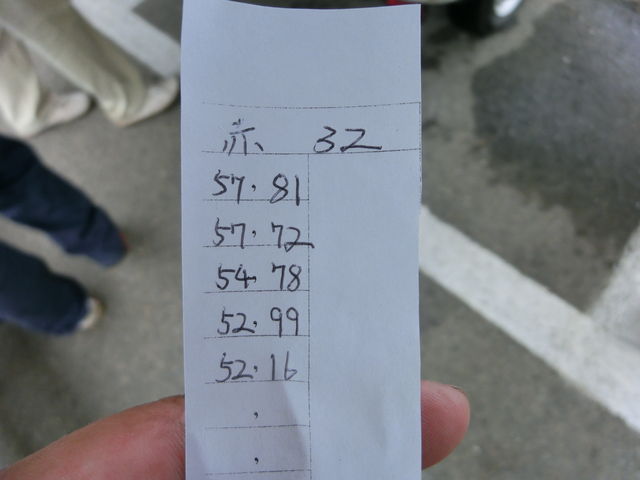 赤 32
57.81
57.72
54.78
52.99
52.16